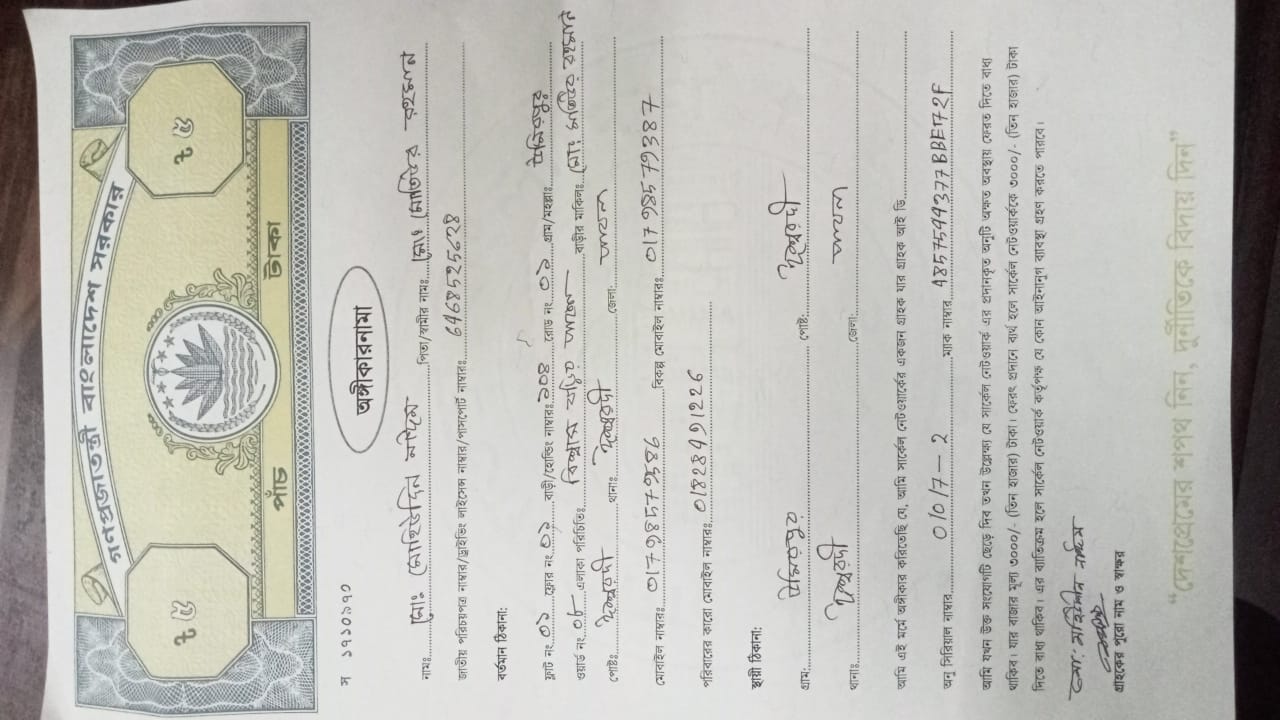 গণপ্রজাতন্ত্রী বাংলাদেশ সরকার
৳ ৫ ৳ ৫
পাঁচ টাকা
স ১৭১০১৯০
অঙ্গীকারনামা
নামঃ মোঃ মোহিউদ্দিন নাঈম পিতা/স্বামীর নামঃ মোঃ মোতিউর রহমান
জাতীয় পরিচয়পত্র নাম্বার/ড্রাইভিং লাইসেন্স নাম্বার/পাসপোর্ট নাম্বারঃ 6468525628
বর্তমান ঠিকানা:
ফ্লাট নং ০১ ফ্লোর নং ০১ বাড়ী/হোল্ডিং নাম্বারঃ ১০৪ রোড নং ০১ গ্রাম/মহল্লাঃ
ওয়ার্ড নং ০৮ এলাকা পরিচিতিঃ বিশ্বাস বাড়ির পাশে বাড়ীর মালিকঃ মোঃ মতিউর রহমান
পোষ্টঃ ঈশ্বরদী থানাঃ ঈশ্বরদী জেলা: পাবনা
মোবাইল নাম্বারঃ 01798579586 বিকল্প মোবাইল নাম্বারঃ 01798579387
পরিবারের কারো মোবাইল নাম্বারঃ 01828491226
স্থায়ী ঠিকানা:
গ্রাম: পোষ্ট: ঈশ্বরদী
থানাঃ ঈশ্বরদী জেলা: পাবনা
আমি এই মর্মে অঙ্গীকার করিতেছি যে, আমি সার্কেল নেটওয়ার্কের একজন গ্রাহক যার গ্রাহক আই ডি
অনু সিরিয়াল নাম্বার 01017-2 ম্যাক নাম্বার 4857544377BBE72F
আমি যখন উক্ত সংযোগটি ছেড়ে দিব তখন উল্লেক্ষ্য যে সার্কেল নেটওয়ার্ক এর প্রদানকৃত অনুটি অক্ষত অবস্থায় ফেরত দিতে বাধ্য
থাকিব। যার বাজার মূল্য ৩০০০/- (তিন হাজার) টাকা। ফেরৎ প্রদানে ব্যর্থ হলে সার্কেল নেটওয়ার্ককে ৩০০০/- (তিন হাজার) টাকা
দিতে বাধ্য থাকিব। এর ব্যতিক্রম হলে সার্কেল নেটওয়ার্ক কর্তৃপক্ষ যে কোন আইনানুগ ব্যবস্থা গ্রহণ করতে পারবে।
গ্রাহকের পুরো নাম ও স্বাক্ষর
"দেশপ্রেমের শপথ নিন, দুর্নীতিকে বিদায় দিন"